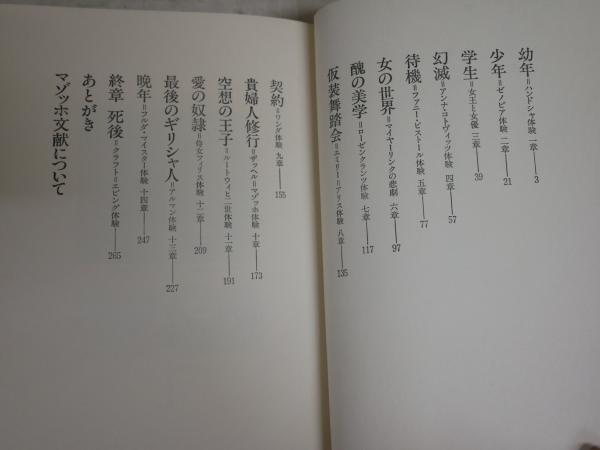 幼年=ハンドシャ体験 一章――3
少年=ゼノビア体験 二章――21
学生=女王と女優 三章――39
幻滅=アンナ・コトヴィッツ体験 四章――57
待機=ファニー・ピストール体験 五章――77
女の世界=マイヤーリンクの悲劇 六章――97
醜の美学=ローゼンクランツ体験 七章――117
仮装舞踏会=エミリー=アリス体験 八章――135
契約=ワンダ体験 九章――155
貴婦人修行=ザッヘル=マゾッホ体験 十章――173
空想の王子=ルートウィヒ二世体験 十一章――191
愛の奴隷=侍女フィリス体験 十二章――209
最後のギリシャ人=アルマン体験 十三章――227
晩年=フルダ・マイスター体験 十四章――247
終章 死後=クラフト=エビング体験――265
あとがき
マゾッホ文献について